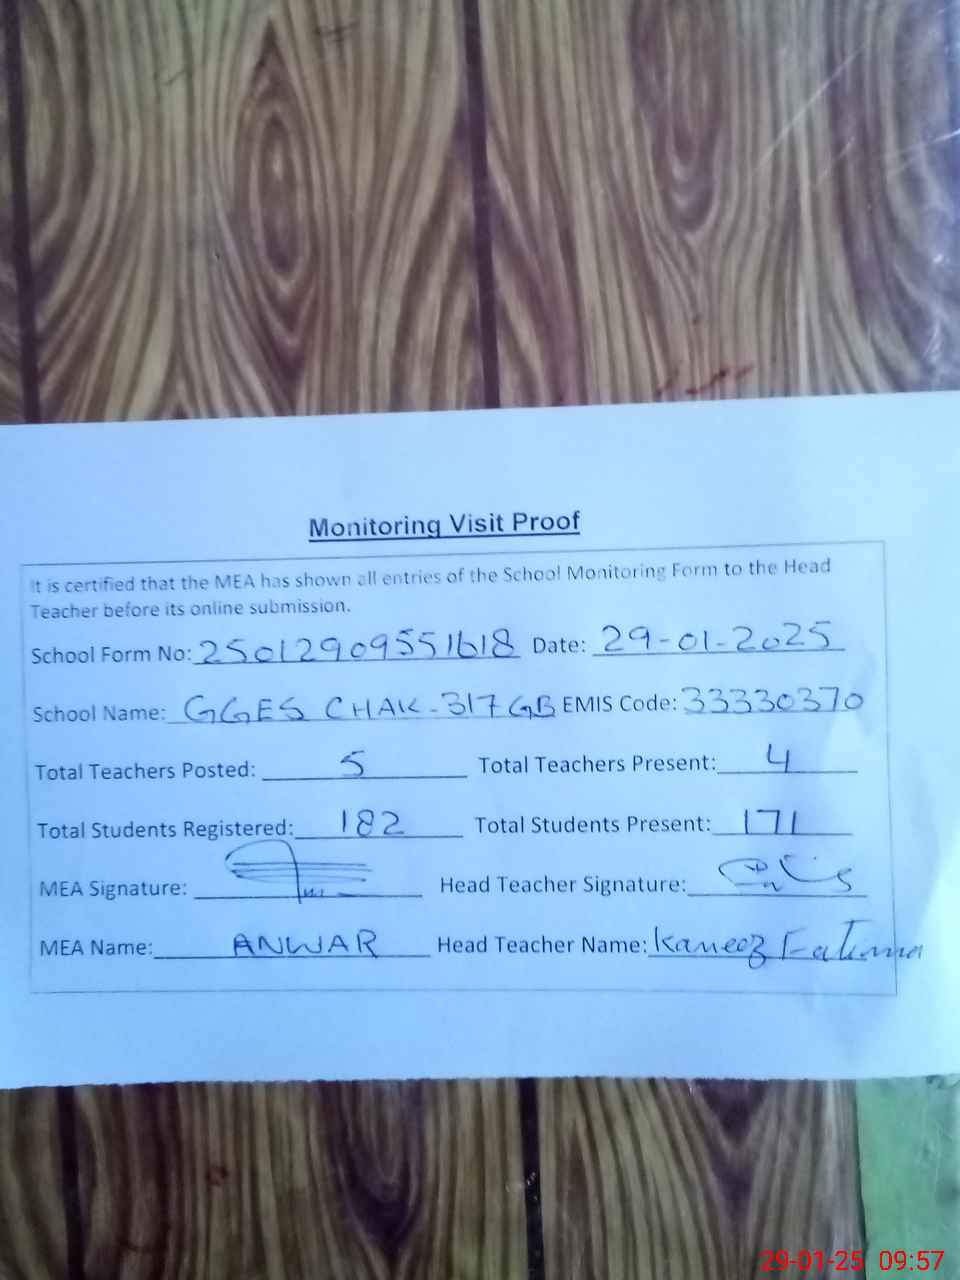 Monitoring Visit Proof
It is certified that the MEA has shown all entries of the School Monitoring Form to the Head
Teacher before its online submission.
School Form No: 25012909551618 Date: 29-01-2025
School Name: GGES CHAK-317 GB EMIS Code: 33330370
Total Teachers Posted: 5 Total Teachers Present: 4
Total Students Registered: 182 Total Students Present: 171
MEA Signature: Head Teacher Signature:
MEA Name: ANWAR Head Teacher Name: Kaneez Fatima
29-01-25 09:57